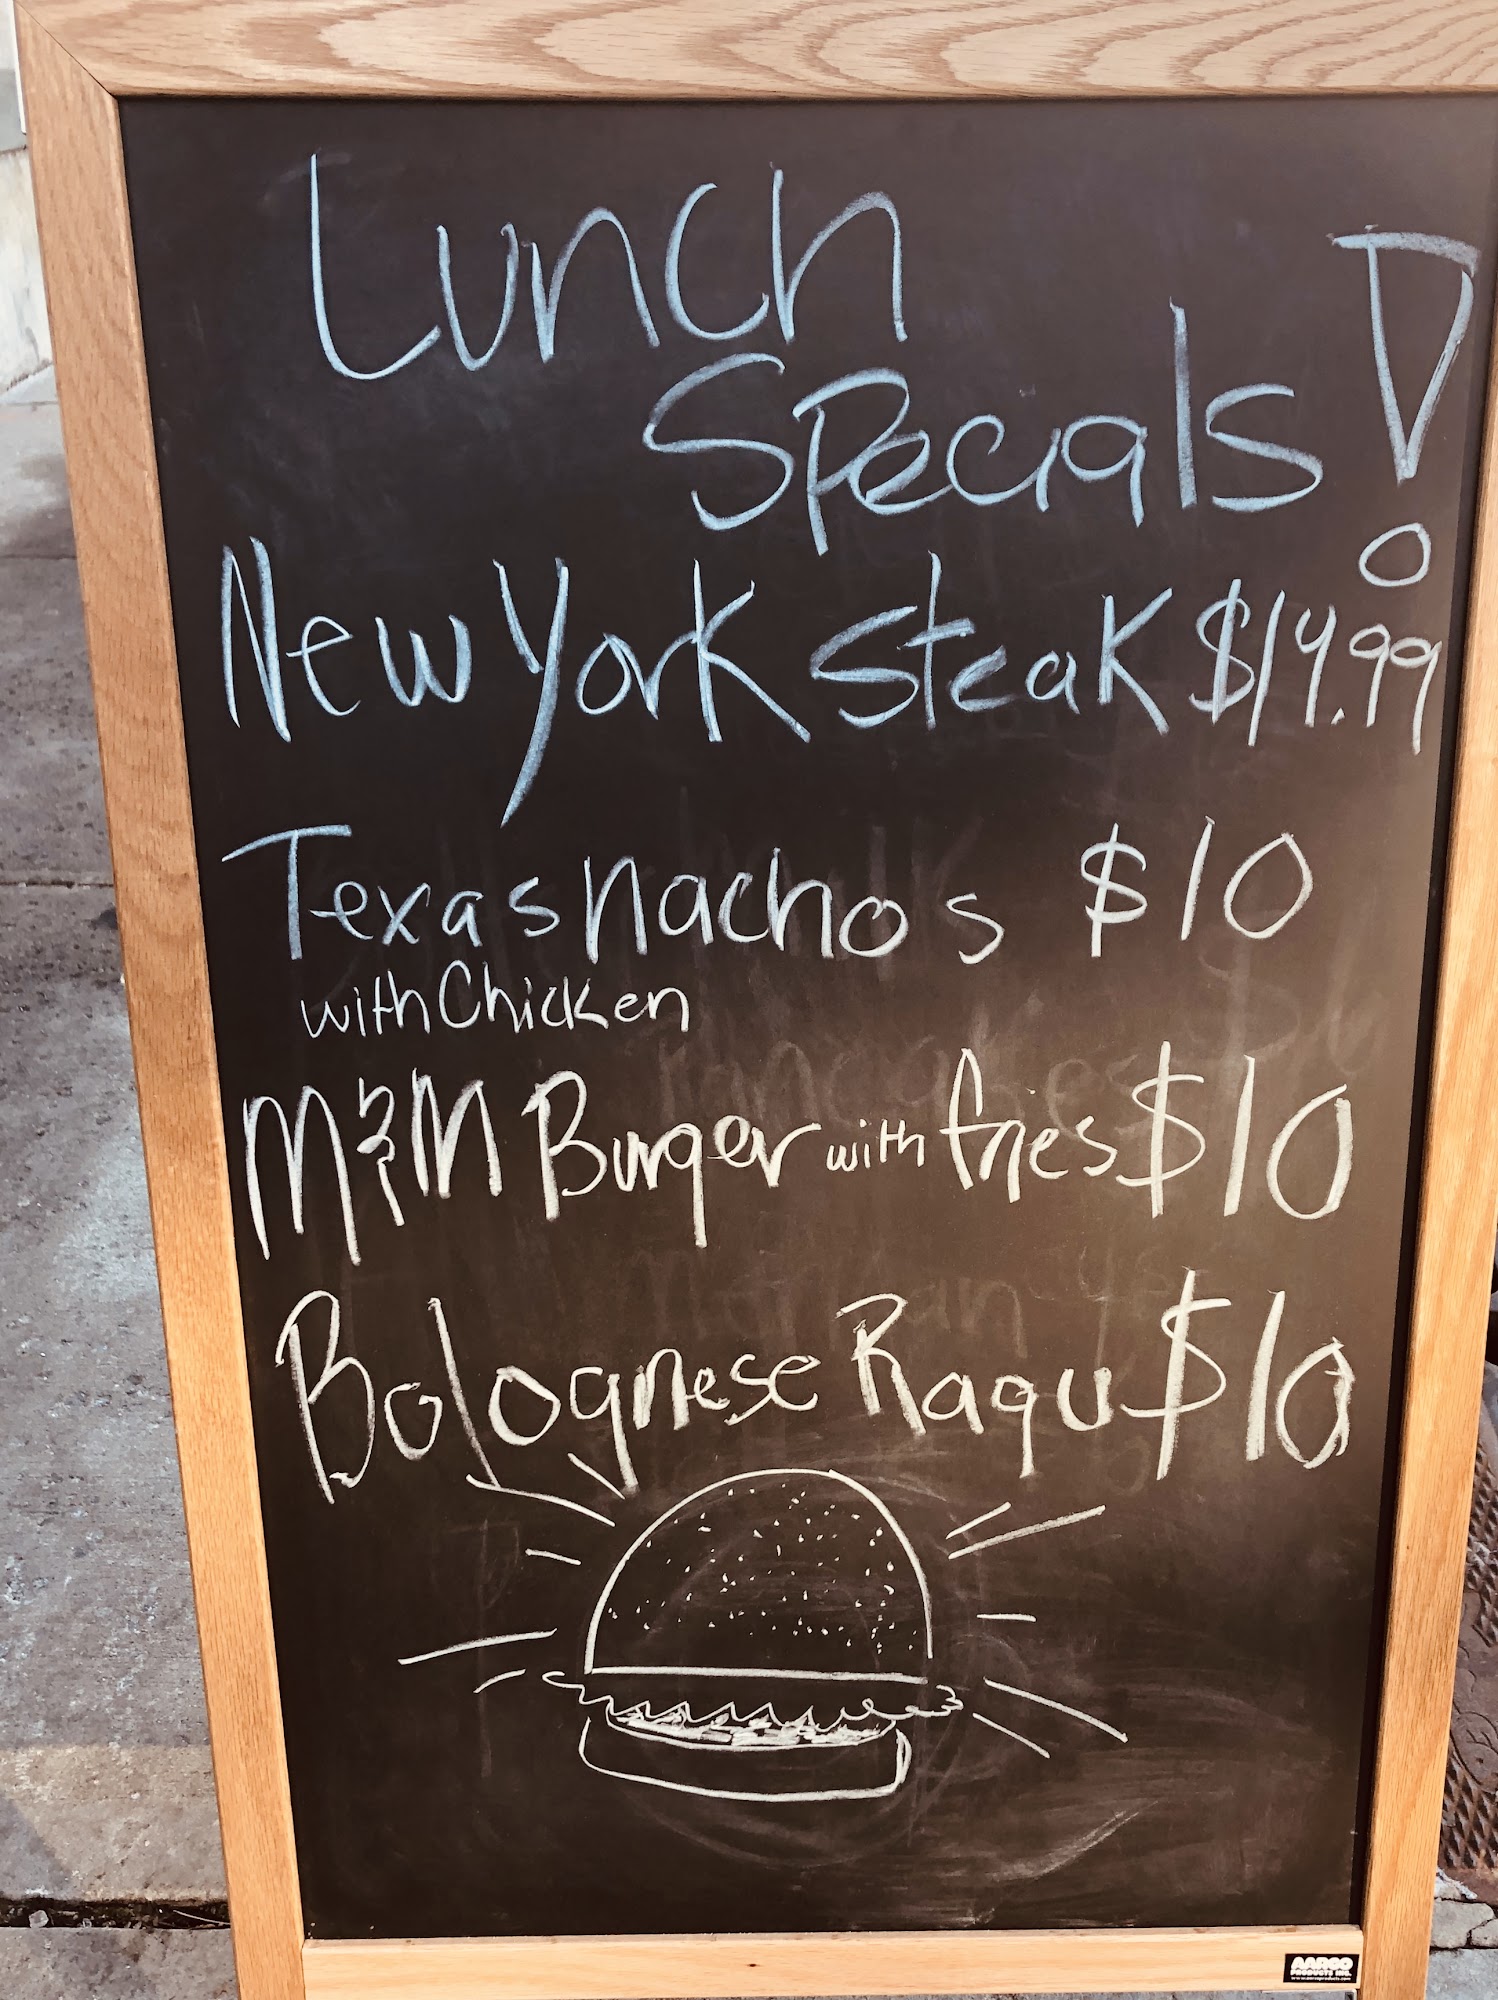 Lunch
Specials!
New York Steak $14.99
Texas nachos $10
with Chicken
M&M Burger with fries $10
Bolognese Ragu $10
AARCO
PRODUCTS INC.
www.aarcoproducts.com